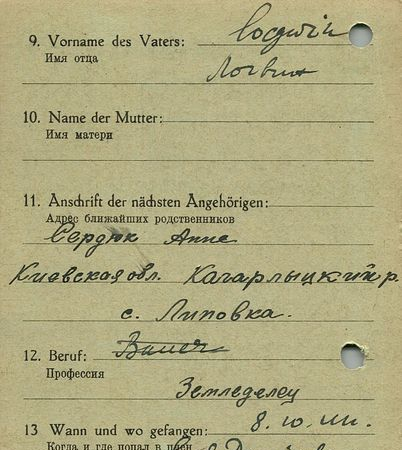 9. Vorname des Vaters:
Имя отца
Логвин
10. Name der Mutter:
Имя матери
11. Anschrift der nächsten Angehörigen:
Адрес ближайших родственников
Сердюк Анне
Киевская обл. Кагарлыцкий р.
с. Липовка.
12. Beruf: Bauer
Профессия
Земледелец
13 Wann und wo gefangen: 8.10.
Когда и где попал в плен